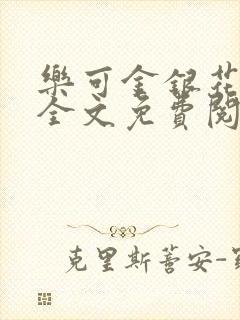 樂可金銀花
全文免費閱
克里斯蒂安-